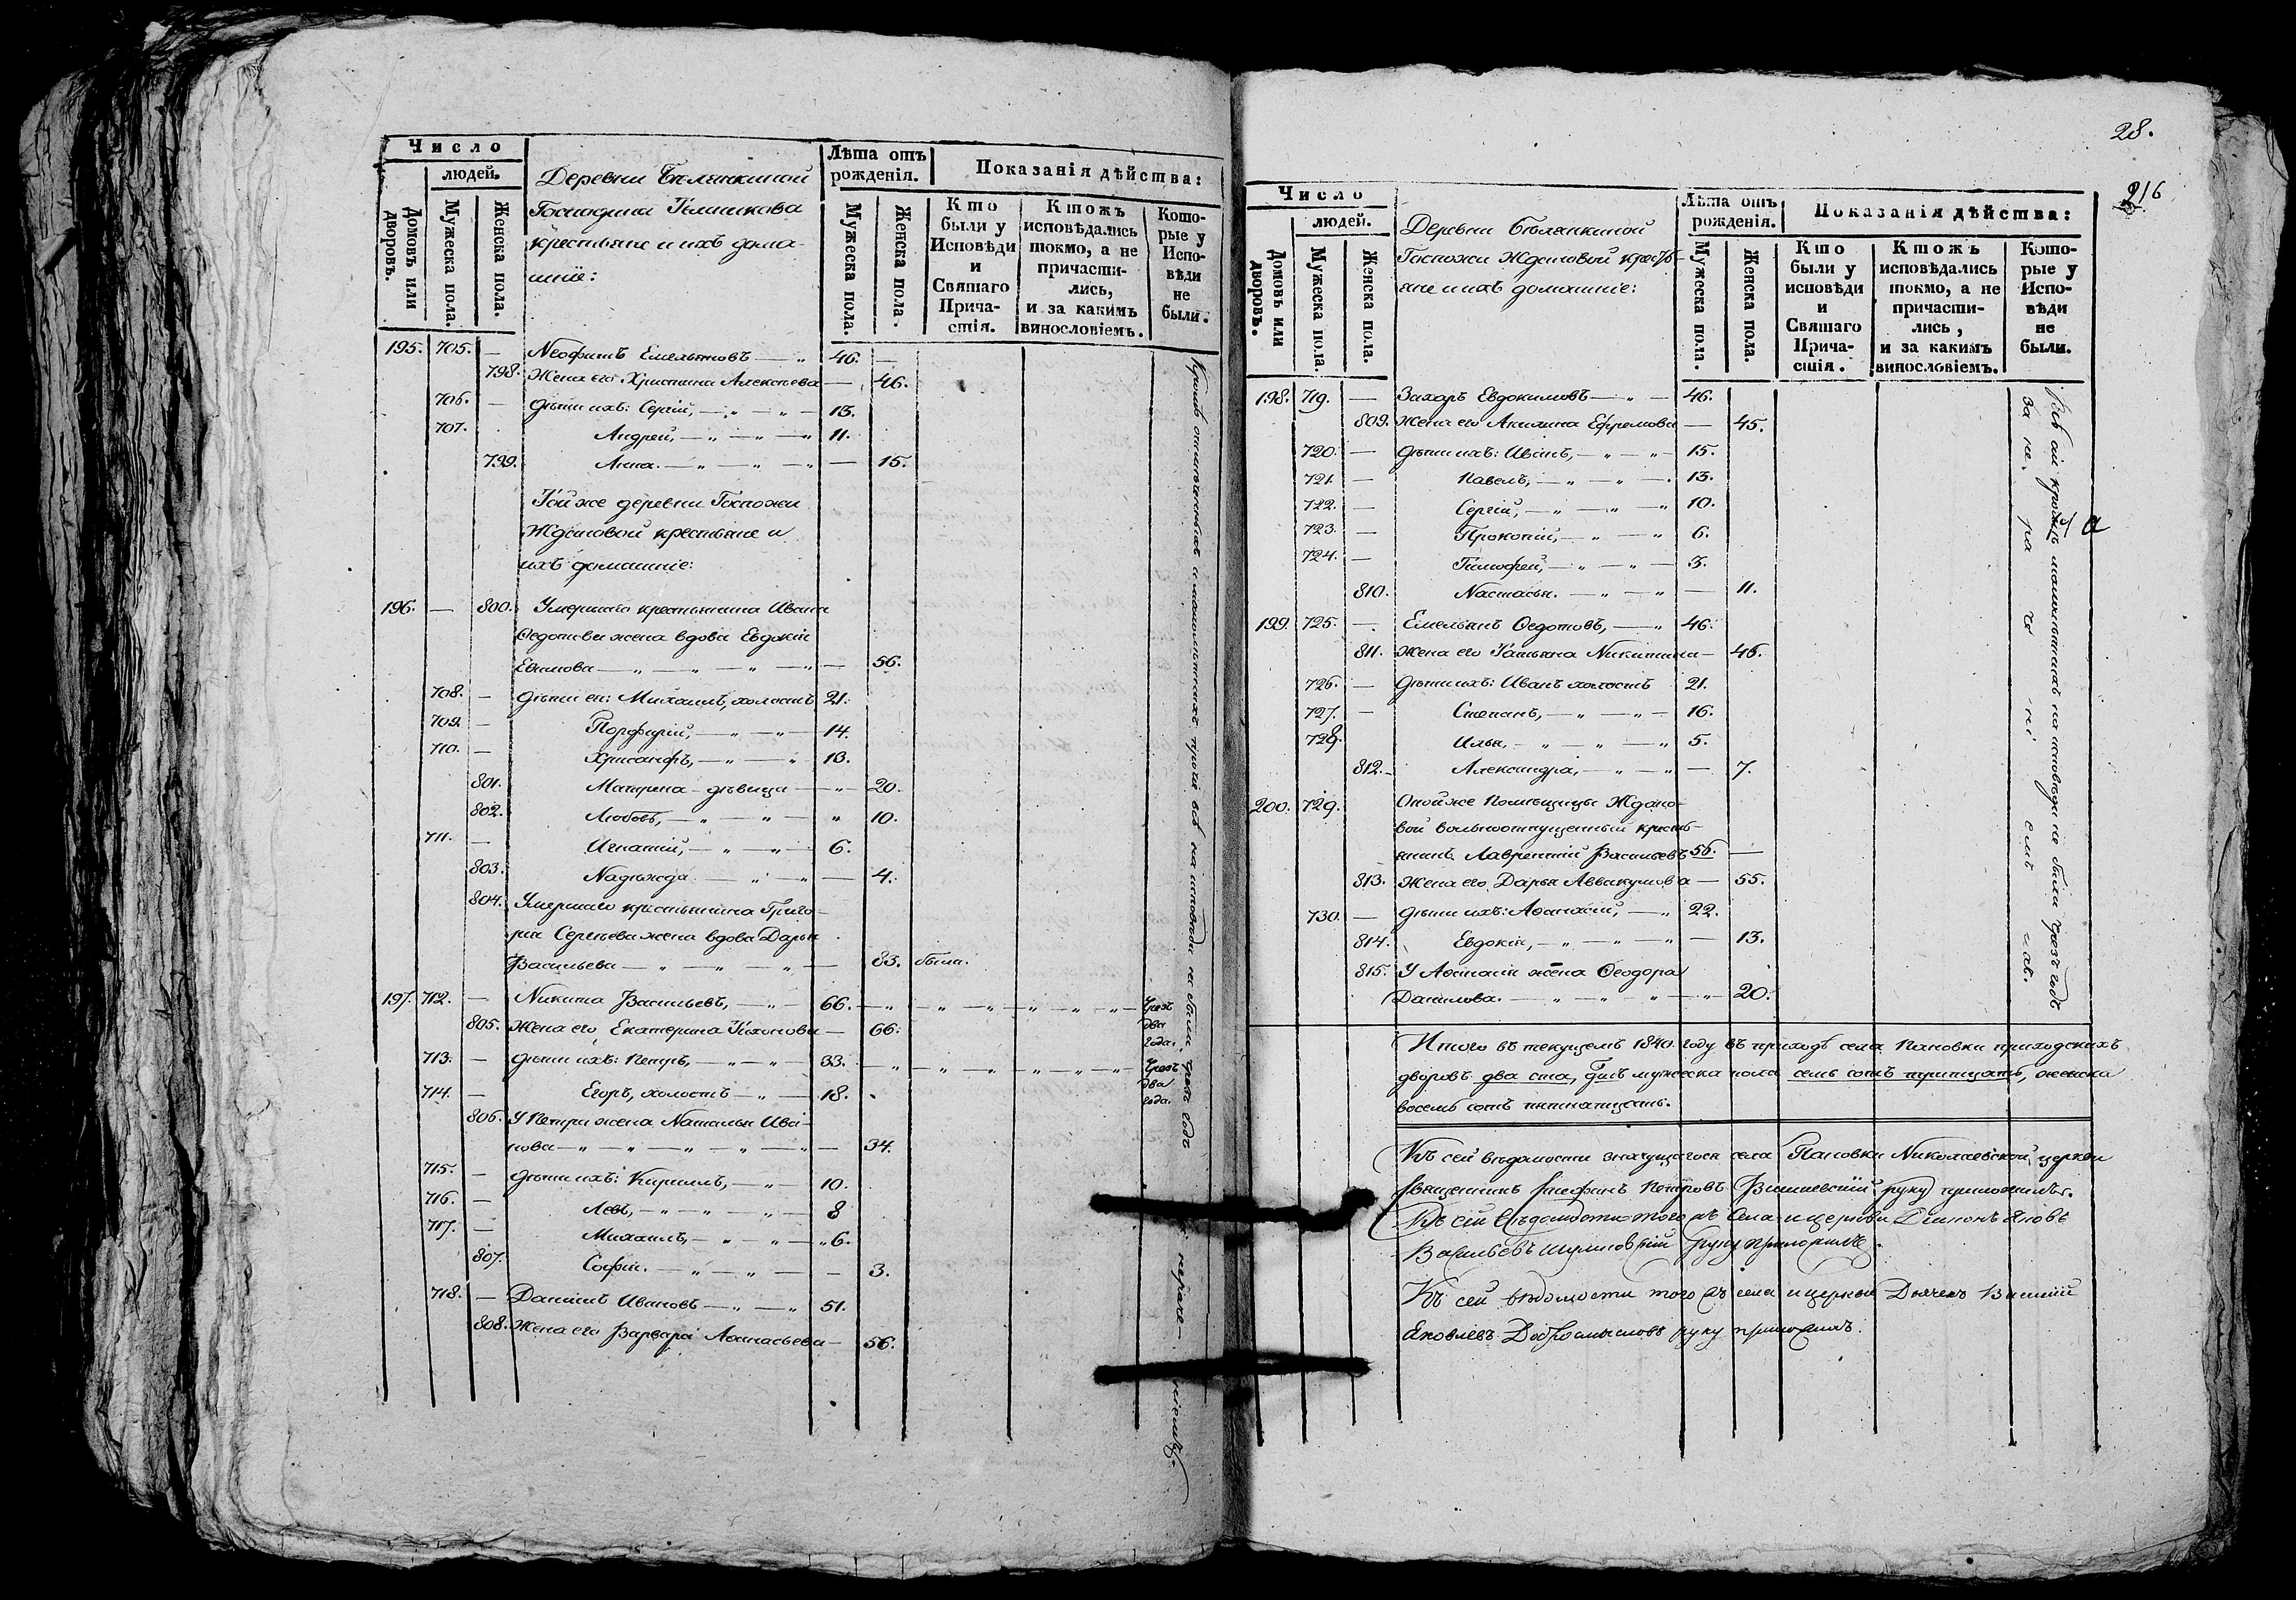 Число
людей.
Домовъ или дворовъ.
Мужеска пола.
Женска пола.
Деревни Белянкиной
Господина
крестьяне и ихъ дома-
шніе:
Лѣта отъ рожденія.
Мужеска пола.
Женска пола.
Показанія дѣйства:
Кто были у Исповѣди и Святаго Причастія.
Ктожъ исповѣдались токмо, а не причастились, и за какимъ винословіемъ.
Которые у Исповѣди не были.
195. 705. — Неофитъ Емельяновъ — 46. —
798. Жена его Христина Алексѣева — 46.
706. — Дѣти ихъ: Сергій, — 13.
707. Андрей, — 11.
799. Анна. — 15.
Той же деревни Госпожи
Ждановой крестьяне и
ихъ домашніе:
196. — 800. Умершаго крестьянина Ивана
Ѳедотова жена вдова Евдокія
Ефимова — 56.
708. — Дѣти ея: Михаилъ, холостъ 21.
709. — Порфирій, — 14.
710. — Хрисанфъ, — 13.
801. Матрена - дѣвица — 20.
802. Любовь, — 10.
711. — Игнатій, — 6.
803. Надежда — 4.
804. Умершаго крестьянина Григо-
рія Сергѣева жена вдова Дарья
Васильева — 83. была.
197. 712. — Никита Васильевъ, — 66. — Чрезъ два года.
805. Жена его, Екатерина Тихонова — 66.
713. — Дѣти ихъ: Петръ, — 33. — Чрезъ два года.
714. — Егоръ, холостъ — 18.
806. У Петра жена Наталья Ива-
нова — 34.
715. — Дѣти ихъ: Кириллъ, — 10.
716. — Левъ, — 8
717. — Михаилъ, — 6.
807. Софія. — 3.
718. — Даніилъ Ивановъ — 51.
808. Жена его Варвара Аѳанасьева — 56.
Кромѣ отмѣченныхъ и малолѣтнихъ прочія всѣ на исповѣди не были чрезъ годъ
28.
216
Число
людей.
Домовъ или дворовъ.
Мужеска пола
Женска пола.
Деревни Бѣлянкиной
Госпожи Ждановой крестьʼ-
яне и ихъ домашніе:
Лѣта отъ рожденія.
Мужеска пола.
Женска пола.
Показанія дѣйства:
Кто были у исповѣди и Святаго Причастія.
Ктожъ исповѣдались токмо, а не причастились, и за какимъ винословіемъ.
Которые у Исповѣди не были.
198. 719. — Захаръ Евдокимовъ — 46.
809. Жена его Акилина Ефремова — 45.
720. — Дѣти ихъ: Иванъ, — 15.
721. — Павелъ, — 13.
722. — Сергій, — 10.
723. — Прокопій, — 6.
724. — Тимофей, — 3.
810. Настасья. — 11.
199. 725. — Емельянъ Ѳедотовъ, — 46.
811. Жена его Татьяна Никитина — 46.
726. — Дѣти ихъ: Иванъ холостъ 21.
727. — Степанъ, — 16.
728. Илья, — 5.
812. Александра, — 7.
200. 729. Оной же Помѣщицы Ждано-
вой вольноотпущенный кресть-
янинъ Лаврентій Васильевъ 56. —
813. Жена его, Дарья Аввакумова — 55.
730. — Дѣти ихъ: Аѳанасій, — 22.
814. Евдокія, — 13.
815. У Аѳанасія жена Ѳеодора
Данилова. — 20.
Всѣ сіи кромѣ малолѣтнихъ на исповѣди не были чрезъ годъ
Итого въ текущемъ 1840. году въ приходѣ села Пановки приходскихъ
дворовъ два ста, въ нихъ мужеска пола семь сотъ тритцать, женска
восемь сотъ пятнатцать.
Къ сей вѣдомости значущагося села Пановки Николаевской церкви
Священникъ Стефанъ Петровъ руку приложилъ.
Къ сей вѣдомости того жъ села и церкви Діаконъ
Васильевъ руку приложилъ.
Къ сей вѣдомости того жъ села и церкви Дьячекъ
Яковлевъ Добросмысловъ руку приложилъ.